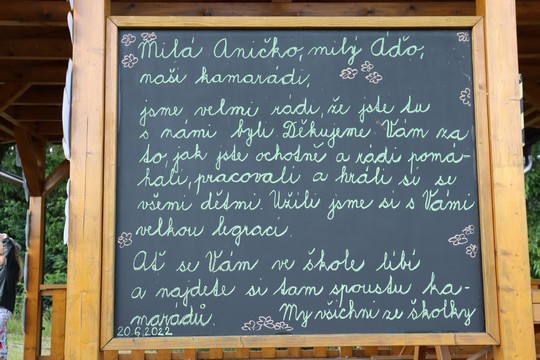 Milá Aničko, milý Áďo,
naši kamarádi,
jsme velmi rádi, že jste tu
s námi byli. Děkujeme Vám za
to, jak jste ochotně a rádi pomá-
hali, pracovali a hráli si se
všemi dětmi. Užili jsme si s Vámi
velkou legraci.
Ať se Vám ve škole líbí
a najdete si tam spoustu ka-
marádů. My všichni ze školky
20.6.2022